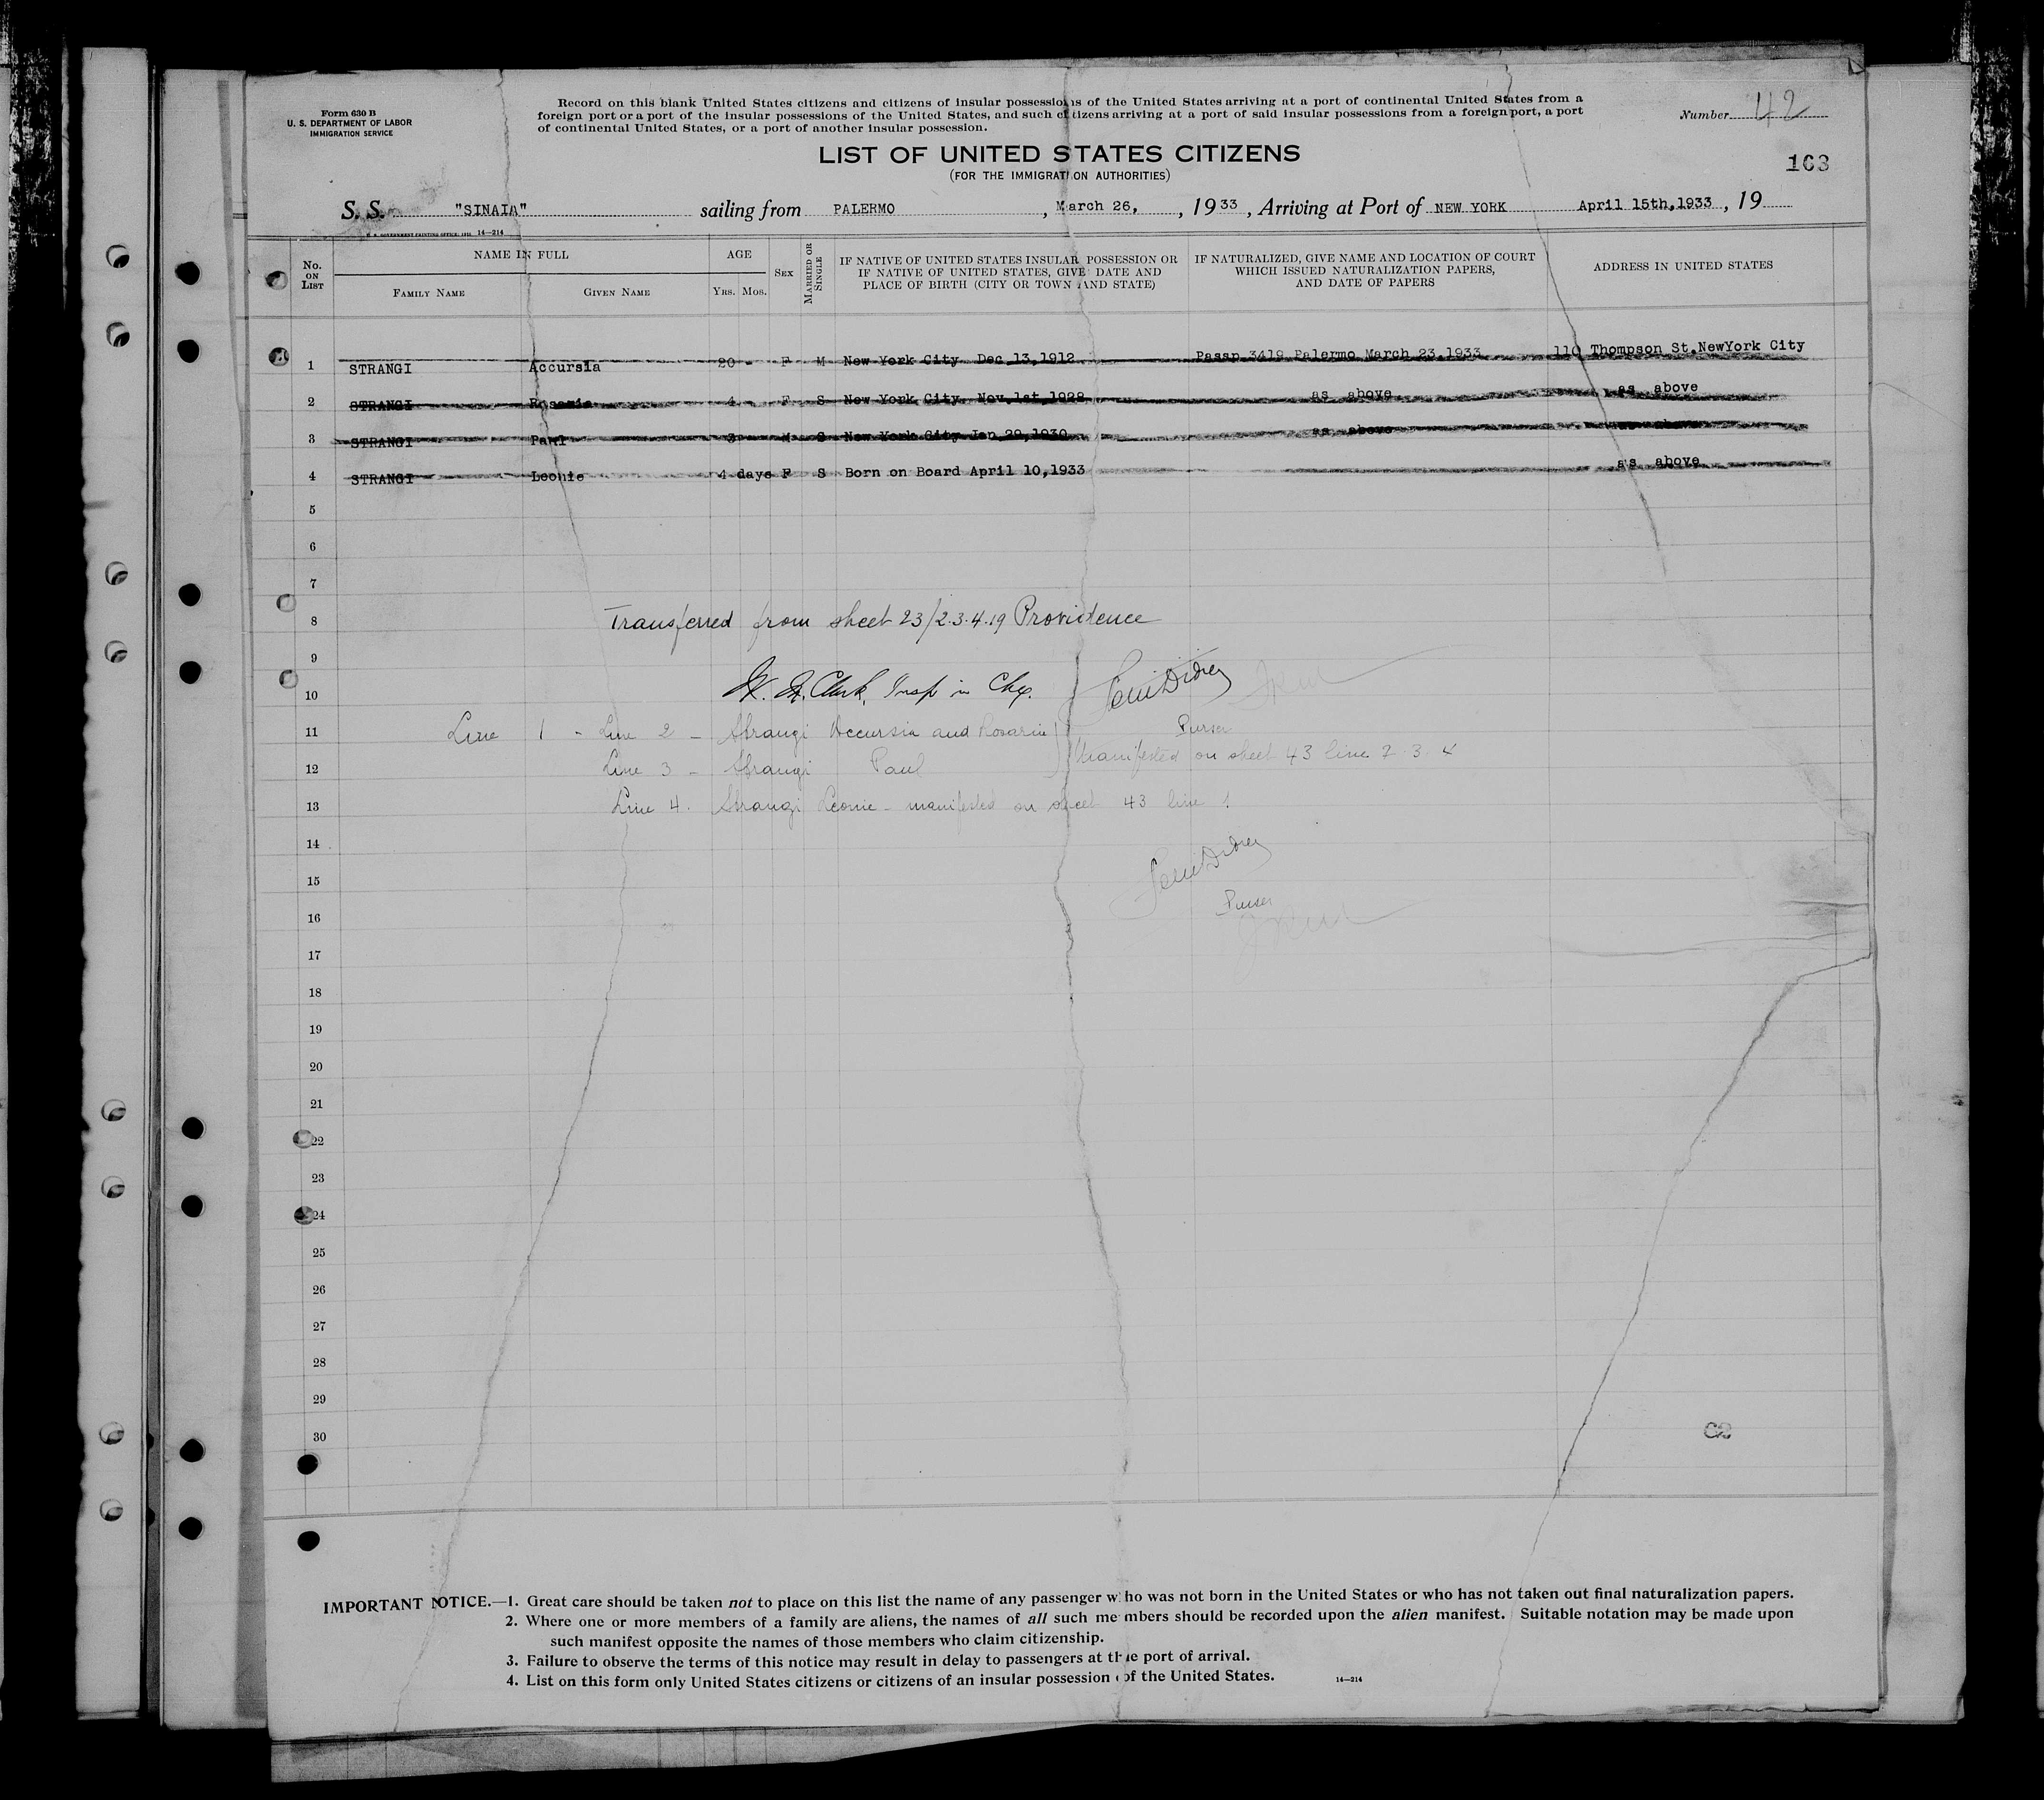 Form 630 B
U. S. DEPARTMENT OF LABOR
IMMIGRATION SERVICE
Record on this blank United States citizens and citizens of insular possessions of the United States arriving at a port of continental United States from a
foreign port or a port of the insular possessions of the United States, and such citizens arriving at a port of said insular possessions from a foreign port, a port
of continental United States, or a port of another insular possession.
Number 42
LIST OF UNITED STATES CITIZENS
(FOR THE IMMIGRATION AUTHORITIES)
163
S. S. "SINAIA" sailing from PALERMO , March 26, , 1933 , Arriving at Port of NEW YORK April 15th,1933 , 19
14—214
No. ON LIST
NAME IN FULL
FAMILY NAME
GIVEN NAME
AGE
YRS. MOS.
SEX
MARRIED OR SINGLE
IF NATIVE OF UNITED STATES INSULAR POSSESSION OR
IF NATIVE OF UNITED STATES, GIVE DATE AND
PLACE OF BIRTH (CITY OR TOWN AND STATE)
IF NATURALIZED, GIVE NAME AND LOCATION OF COURT
WHICH ISSUED NATURALIZATION PAPERS,
AND DATE OF PAPERS
ADDRESS IN UNITED STATES
1 STRANGI Accursia 20 - F M New York City Dec 13,1912 Passp 3419 Palermo March 23,1933 110 Thompson St.NewYork City
2 STRANGI Rosaria 4 F S New York City Nov.1st,1928 as above as above
3 STRANGI Paul 3 M S New York City Jan 29,1930 as above as above
4 STRANGI Leonie 4 days F S Born on Board April 10,1933 as above
5
6
7
8 Transferred from sheet 23/2.3.4.19 Providence
9
10 Clark, Insp in Chg.
11 Line 1 - Line 2 - Strangi Accursia and Rosaria Purser
12 Line 3 - Strangi Paul Manifested on sheet 43 line 2. 3. 4
13 Line 4. Strangi Leonie - manifested on sheet 43 line 1
14
15
16 Purser
17
18
19
20
21
22
23
24
25
26
27
28
29
30
IMPORTANT NOTICE.—1. Great care should be taken not to place on this list the name of any passenger who was not born in the United States or who has not taken out final naturalization papers.
2. Where one or more members of a family are aliens, the names of all such members should be recorded upon the alien manifest. Suitable notation may be made upon
such manifest opposite the names of those members who claim citizenship.
3. Failure to observe the terms of this notice may result in delay to passengers at the port of arrival.
4. List on this form only United States citizens or citizens of an insular possession of the United States.
14—214